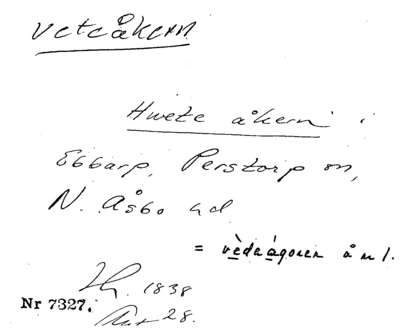 Veteåkern
Hwete åkern i
Ebbarp, Perstorp sn,
N. Åsbo hd
= vèdeágoren å nl.
1838
Nr 7327.
28.